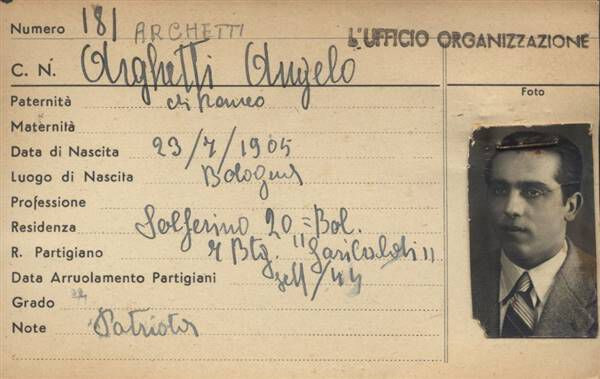 Numero 181 ARCHETTI
L'UFFICIO ORGANIZZAZIONE
C. N. Arghetti Angelo
Foto
Paternità di Romeo
Maternità
Data di Nascita 23/7/1905
Luogo di Nascita Bologna
Professione
Residenza Solferino 20 = Bol.
R. Partigiano Btg. "Garibaldi"
Data Arruolamento Partigiani sett/44
Grado
Note Patriota